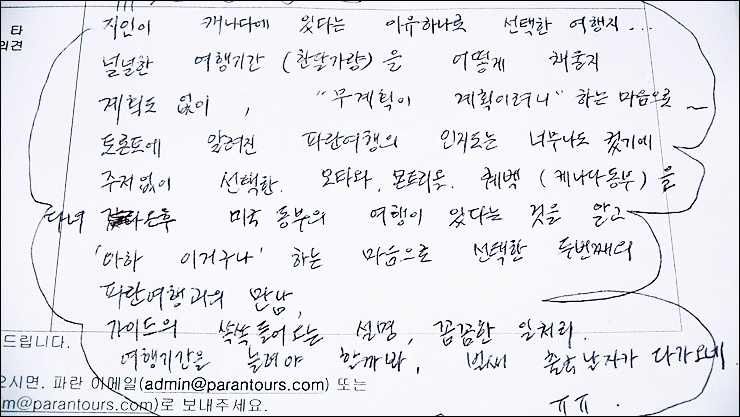 타
의견
지인이 캐나다에 있다는 이유하나로 선택한 여행지...
널널한 여행기간 (한달가량)을 어떻게 채울지
계획도 없이, "무계획이 계획이려니" 하는 마음으로 ~
토론토에 알려진 파란여행의 인지도는 너무나도 컸기에
주저없이 선택한. 오타와, 몬트리올. 퀘벡 (캐나다동부)을
다녀 온후 미국 동부의 여행이 있다는 것을 알고
'아하 이거구나' 하는 마음으로 선택한 두번째의
파란여행과의 만남,
가이드의 쏙쏙들어오는 설명, 꼼꼼한 일처리.
여행기간을 늘려야 할까봐, 벌써 출국날짜가 다가오네.
ㅠㅠ.
드립니다.
으시면. 파란 이메일(admin@parantours.com) 또는
m@parantours.com)로 보내주세요.